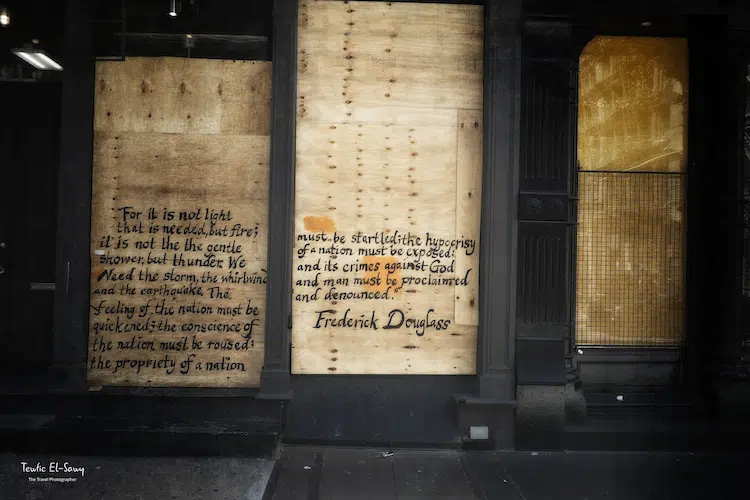 "For it is not light
that is needed, but fire;
it is not the the gentle
shower, but thunder. We
Need the storm, the whirlwind
and the earthquake. The
feeling of the nation must be
quickened; the conscience of
the nation must be roused;
the propriety of a nation
must be startled; the hypocrisy
of a nation must be exposed;
and its crimes against God
and man must be proclaimed
and denounced."
Frederick Douglass
Tewfic El-Sawy
The Travel Photographer